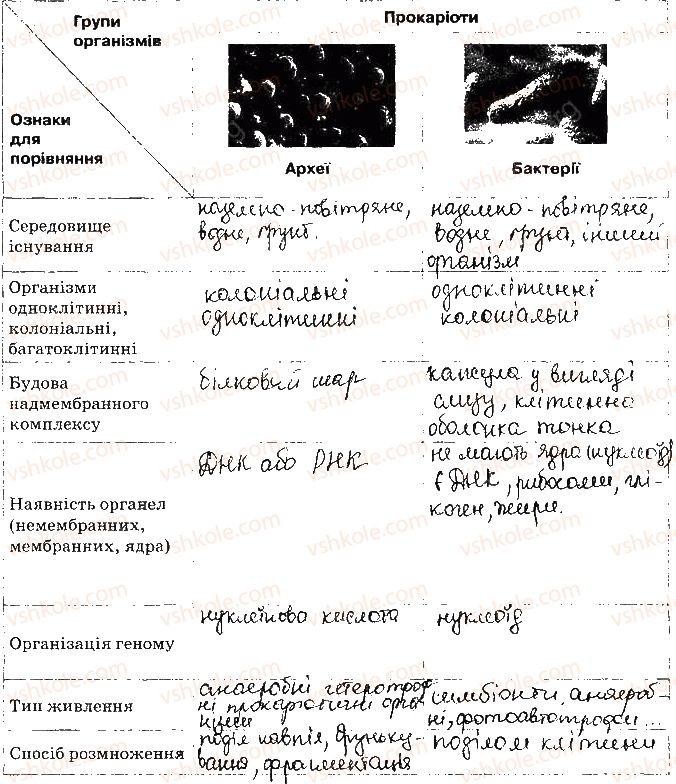 Групи
організмів
Прокаріоти
Ознаки
для
порівняння
Археї
Бактерії
Середовище
існування
наземно-повітряне,
водне, ґрунт.
наземно-повітряне,
водне, ґрунт, інший
організм
Організми
одноклітинні,
колоніальні,
багатоклітинні
колоніальні
одноклітинні
одноклітинні
колоніальні
Будова
надмембранного
комплексу
білковий шар
капсула у вигляді
слизу, клітинна
оболонка тонка
Наявність органел
(немембранних,
мембранних, ядра)
ДНК або РНК
не мають ядра (нуклеоїд)
є ДНК, рибосоми, глі-
коген, жири.
Організація геному
нуклеїнова кислота
нуклеоїд
Тип живлення
анаеробні гетеротроф
ні прокаріотичні орга
нізми
симбіонти, анаероб-
ні, фотоавтотрофи...
Спосіб розмноження
поділ навпіл, бруньку
вання, фрагментація
поділом клітини
vshkole.com